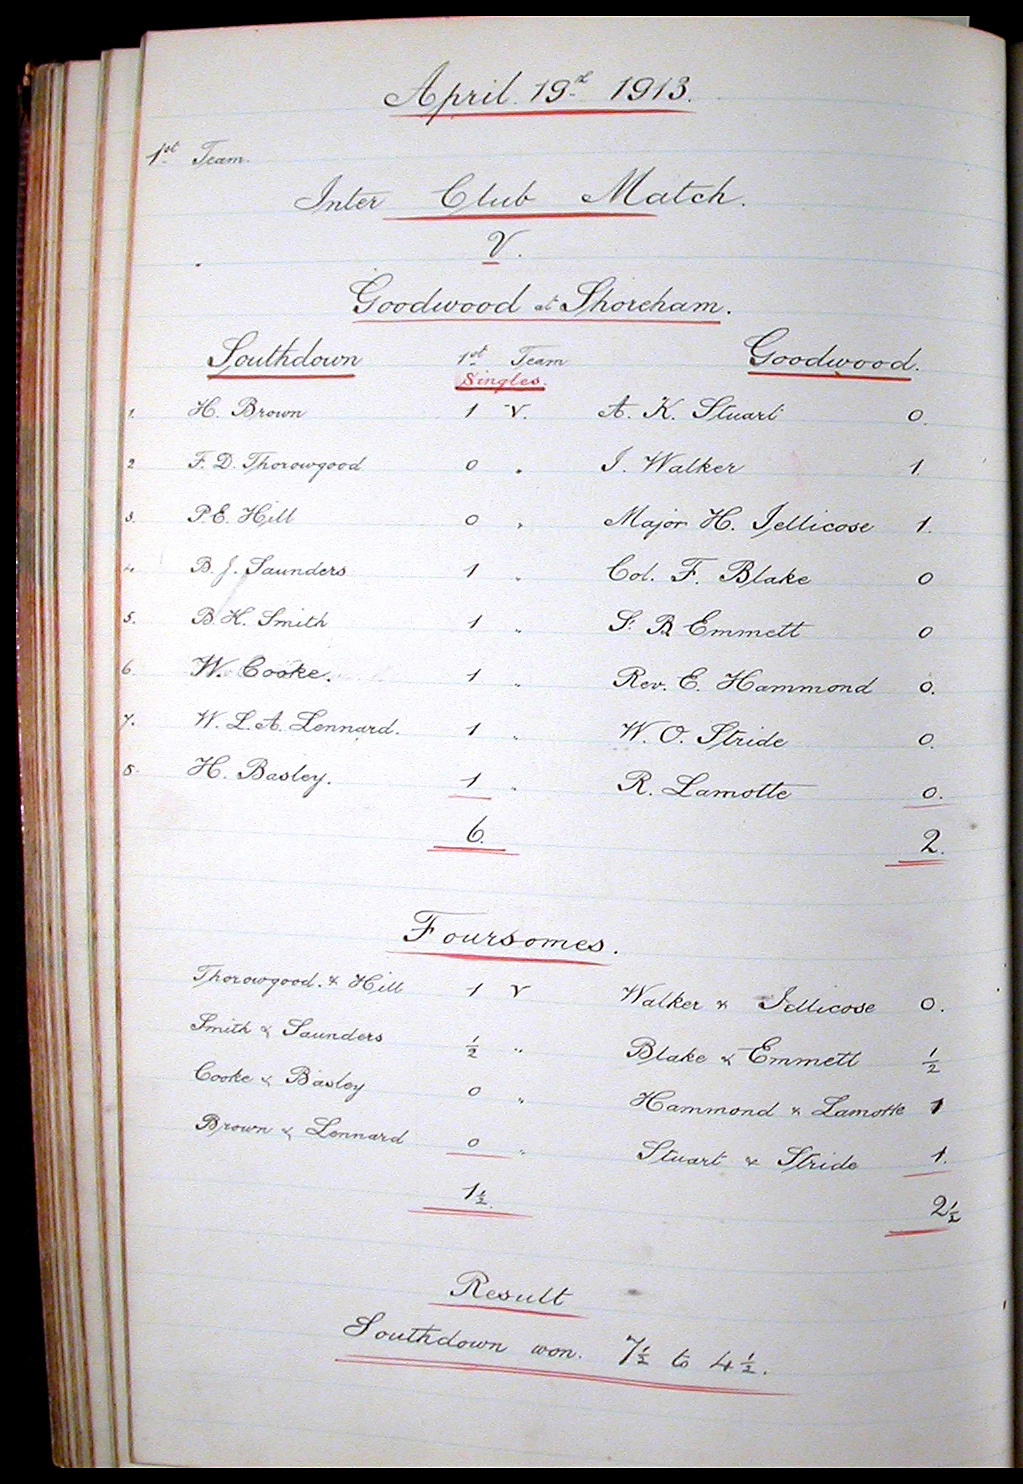 April. 19th 1913.
1st Team.
Inter Club Match.
V.
Goodwood at Shoreham.
Southdown 1st Team Goodwood.
Singles.
1. H. Brown 1 V. A. K. Stuart 0.
2 F. D. Thorowgood 0 " J. Walker 1.
3. P.E. Hill 0 " Major H. Jellicose 1.
4. B. J. Saunders 1 " Col. F. Blake 0
5. B. H. Smith 1 " S. B. Emmett 0
6. W. Cooke. 1 " Rev. E. Hammond 0.
7. W. L. A. Lennard. 1 " W. O. Stride 0.
8. H. Basley. 1 " R. Lamotte 0.
6. 2.
Foursomes.
Thorowgood. & Hill 1 V Walker & Jellicose 0.
Smith & Saunders ½ " Blake & Emmett ½
Cooke & Basley 0 " Hammond & Lamotte 1
Brown & Lennard 0 " Stuart & Stride 1.
1½. 2½
Result
Southdown won. 7½ to 4½.